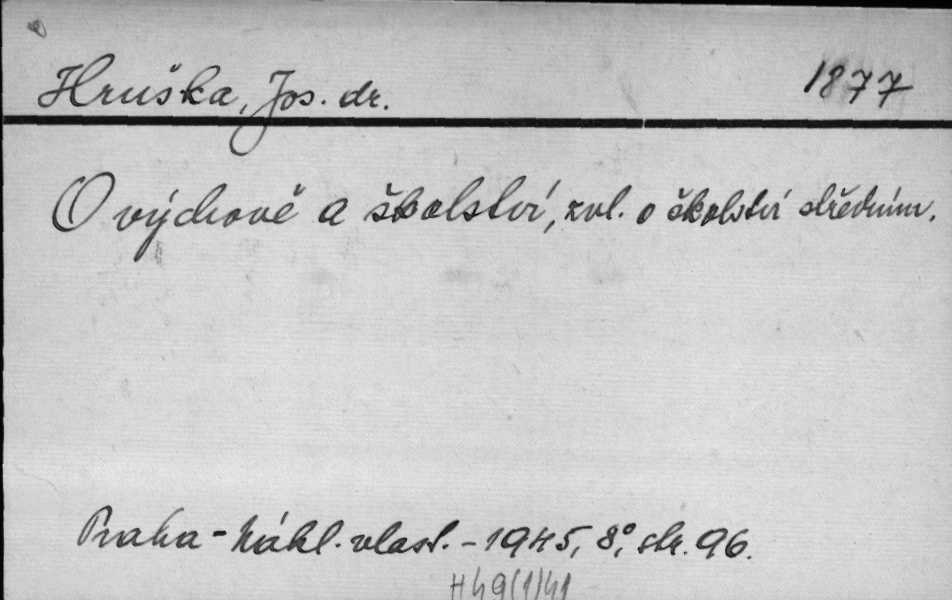 Hruška, Jos. dr. 1877
O výchově a školství, zvl. o školství středním.
Praha - Nákl. vlast. - 1945, 8°, str. 96.
H49(1)41